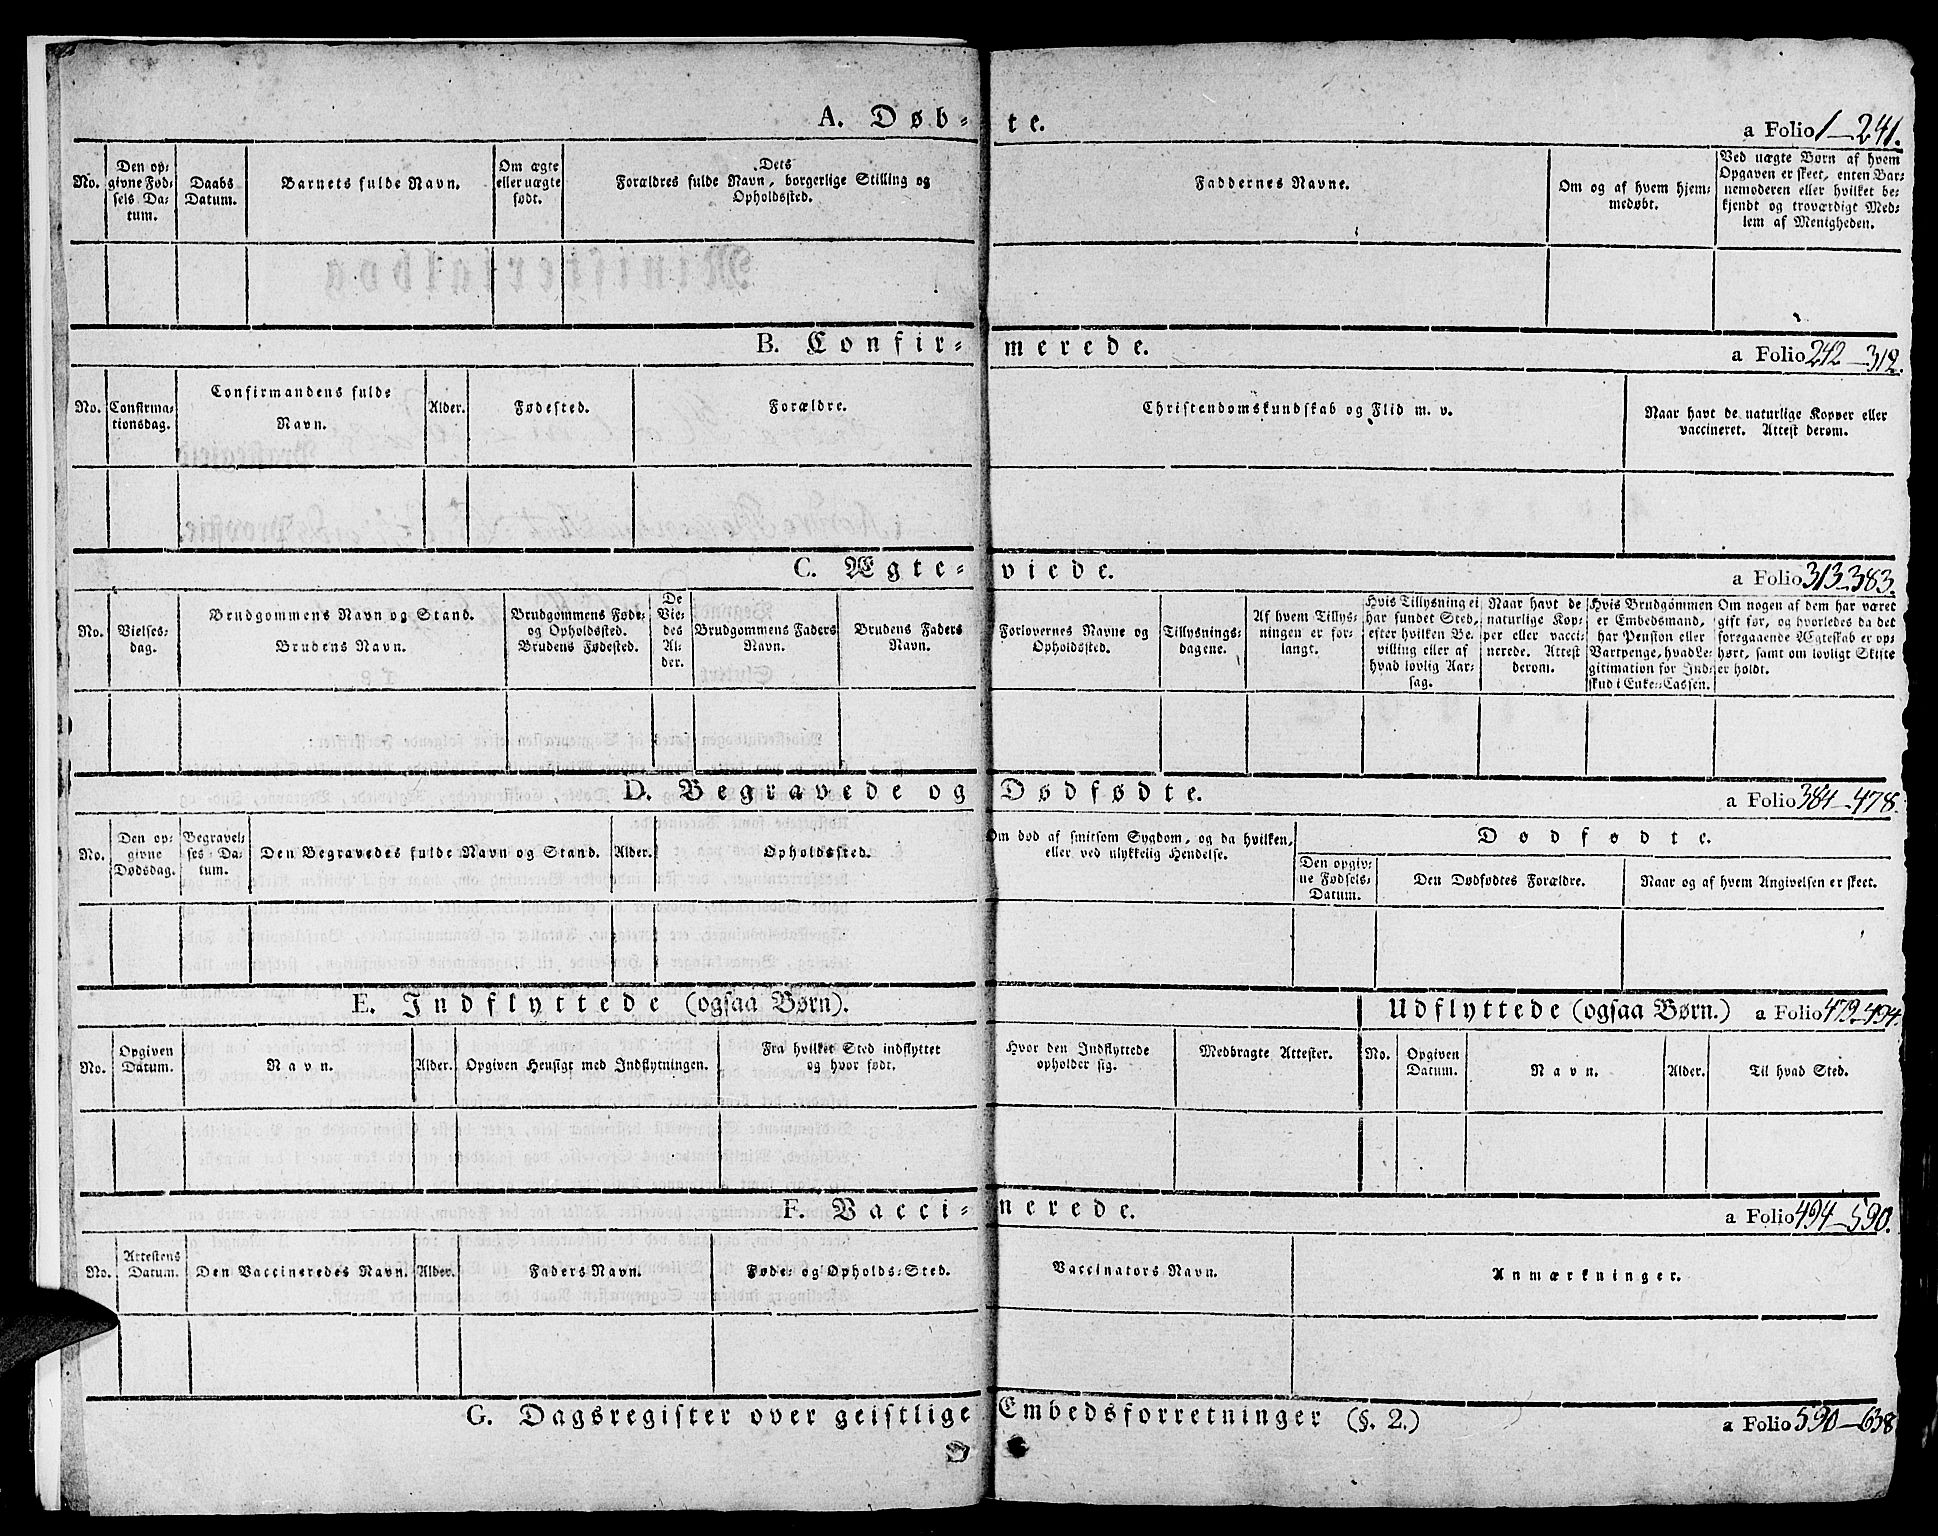 A. Døb- te.
a Folio 1-241.
No.
Den opgivne Fødsels Datum.
Daabs Datum.
Barnets fulde Navn.
Om ægte eller uægte født.
Dets Forældres fulde Navn, borgerlige Stilling og Opholdssted.
Faddernes Navne.
Om og af hvem hjemmedøbt.
Ved uægte Børn af hvem Opgaven er skeet, enten Barnemoderen eller hvilket bekjendt og troværdigt Medlem af Menigheden.
B. Confir- merede.
a Folio 242-312.
No.
Confirmationsdag.
Confirmandens fulde Navn.
Alder.
Fødested.
Forældre.
Christendomskundskab og Flid m. v.
Naar havt de naturlige Kopper eller vaccineret. Attest derom.
C. Ægte- viede.
a Folio 313-383.
No.
Vielsesdag.
Brudgommens Navn og Stand.
Brudens Navn.
Brudgommens Føde- og Opholdssted.
Brudens Fødested.
De Viedes Alder.
Brudgommens Faders Navn.
Brudens Faders Navn.
Forlovernes Navne og Opholdssted.
Tillysningsdagene.
Af hvem Tillysningen er forlangt.
Hvis Tillysning ei har fundet Sted, efter hvilken Bevilling eller af hvad lovlig Aarsag.
Naar havt de naturlige Kopper eller vaccinerede. Attest derom.
Hvis Brudgommen er Embedsmand, har Pension eller Vartpenge, hvad Legitimation for Indskud i Enke-Cassen.
Om nogen af dem har været gift før, og hvorledes da det foregaaende Ægteskab er ophørt, samt om lovligt Skifte er holdt.
D. Begravede og Dødfødte.
a Folio 384-478.
No.
Den opgivne Dødsdag.
Begravelses-Datum.
Den Begravedes fulde Navn og Stand.
Alder.
Opholdssted.
Om død af smitsom Sygdom, og da hvilken, eller ved ulykkelig Hendelse.
Dødfødte.
Den opgivne Fødsels-Datum.
Den Dødfødtes Forældre.
Naar og af hvem Angivelsen er skeet.
E. Indflyttede (ogsaa Børn).
Udflyttede (ogsaa Børn.)
a Folio 479-494.
No.
Opgiven Datum.
Navn.
Alder.
Opgiven Hensigt med Indflytningen.
Fra hvilket Sted indflyttet og hvor født.
Hvor den Indflyttede opholder sig.
Medbragte Attester.
No.
Opgiven Datum.
Navn.
Alder.
Til hvad Sted.
F. Vacci- nerede.
a Folio 494-590.
No.
Attestens Datum.
Den Vaccineredes Navn.
Alder.
Faders Navn.
Føde- og Opholds-Sted.
Vaccinators Navn.
Anmærkninger.
G. Dagsregister over geistlige Embedsforretninger (§. 2.)
a Folio 590-638